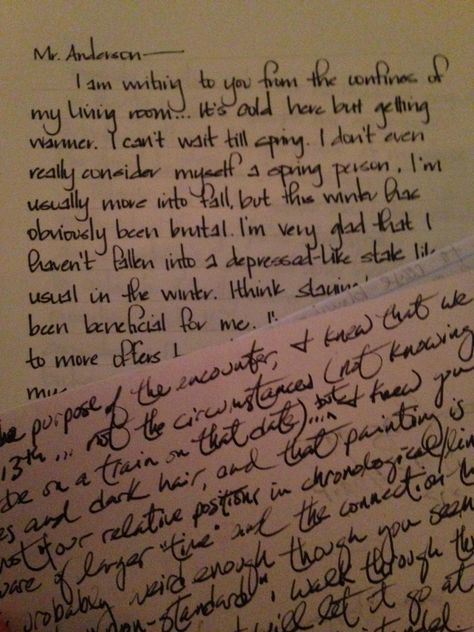 Mr. Anderson—
I am writing to you from the confines of
my living room... It's cold here but getting
warmer. I can't wait till spring. I don't even
really consider myself a spring person. I'm
usually more into fall, but this winter has
obviously been brutal. I'm very glad that I
haven't fallen into a depressed-like state like
usual in the winter. I think staying
been beneficial for me.
to more offers I
he purpose of the encounter, I knew that we
13th... not the circumstances (not knowing
be on a train on that date)... but I knew you
es and dark hair, and that painting is
not of our relative positions in chronological/lin
are of larger "time" and the connection
probably weird enough though you seem
"non-standard", I walk through th
will let it go at